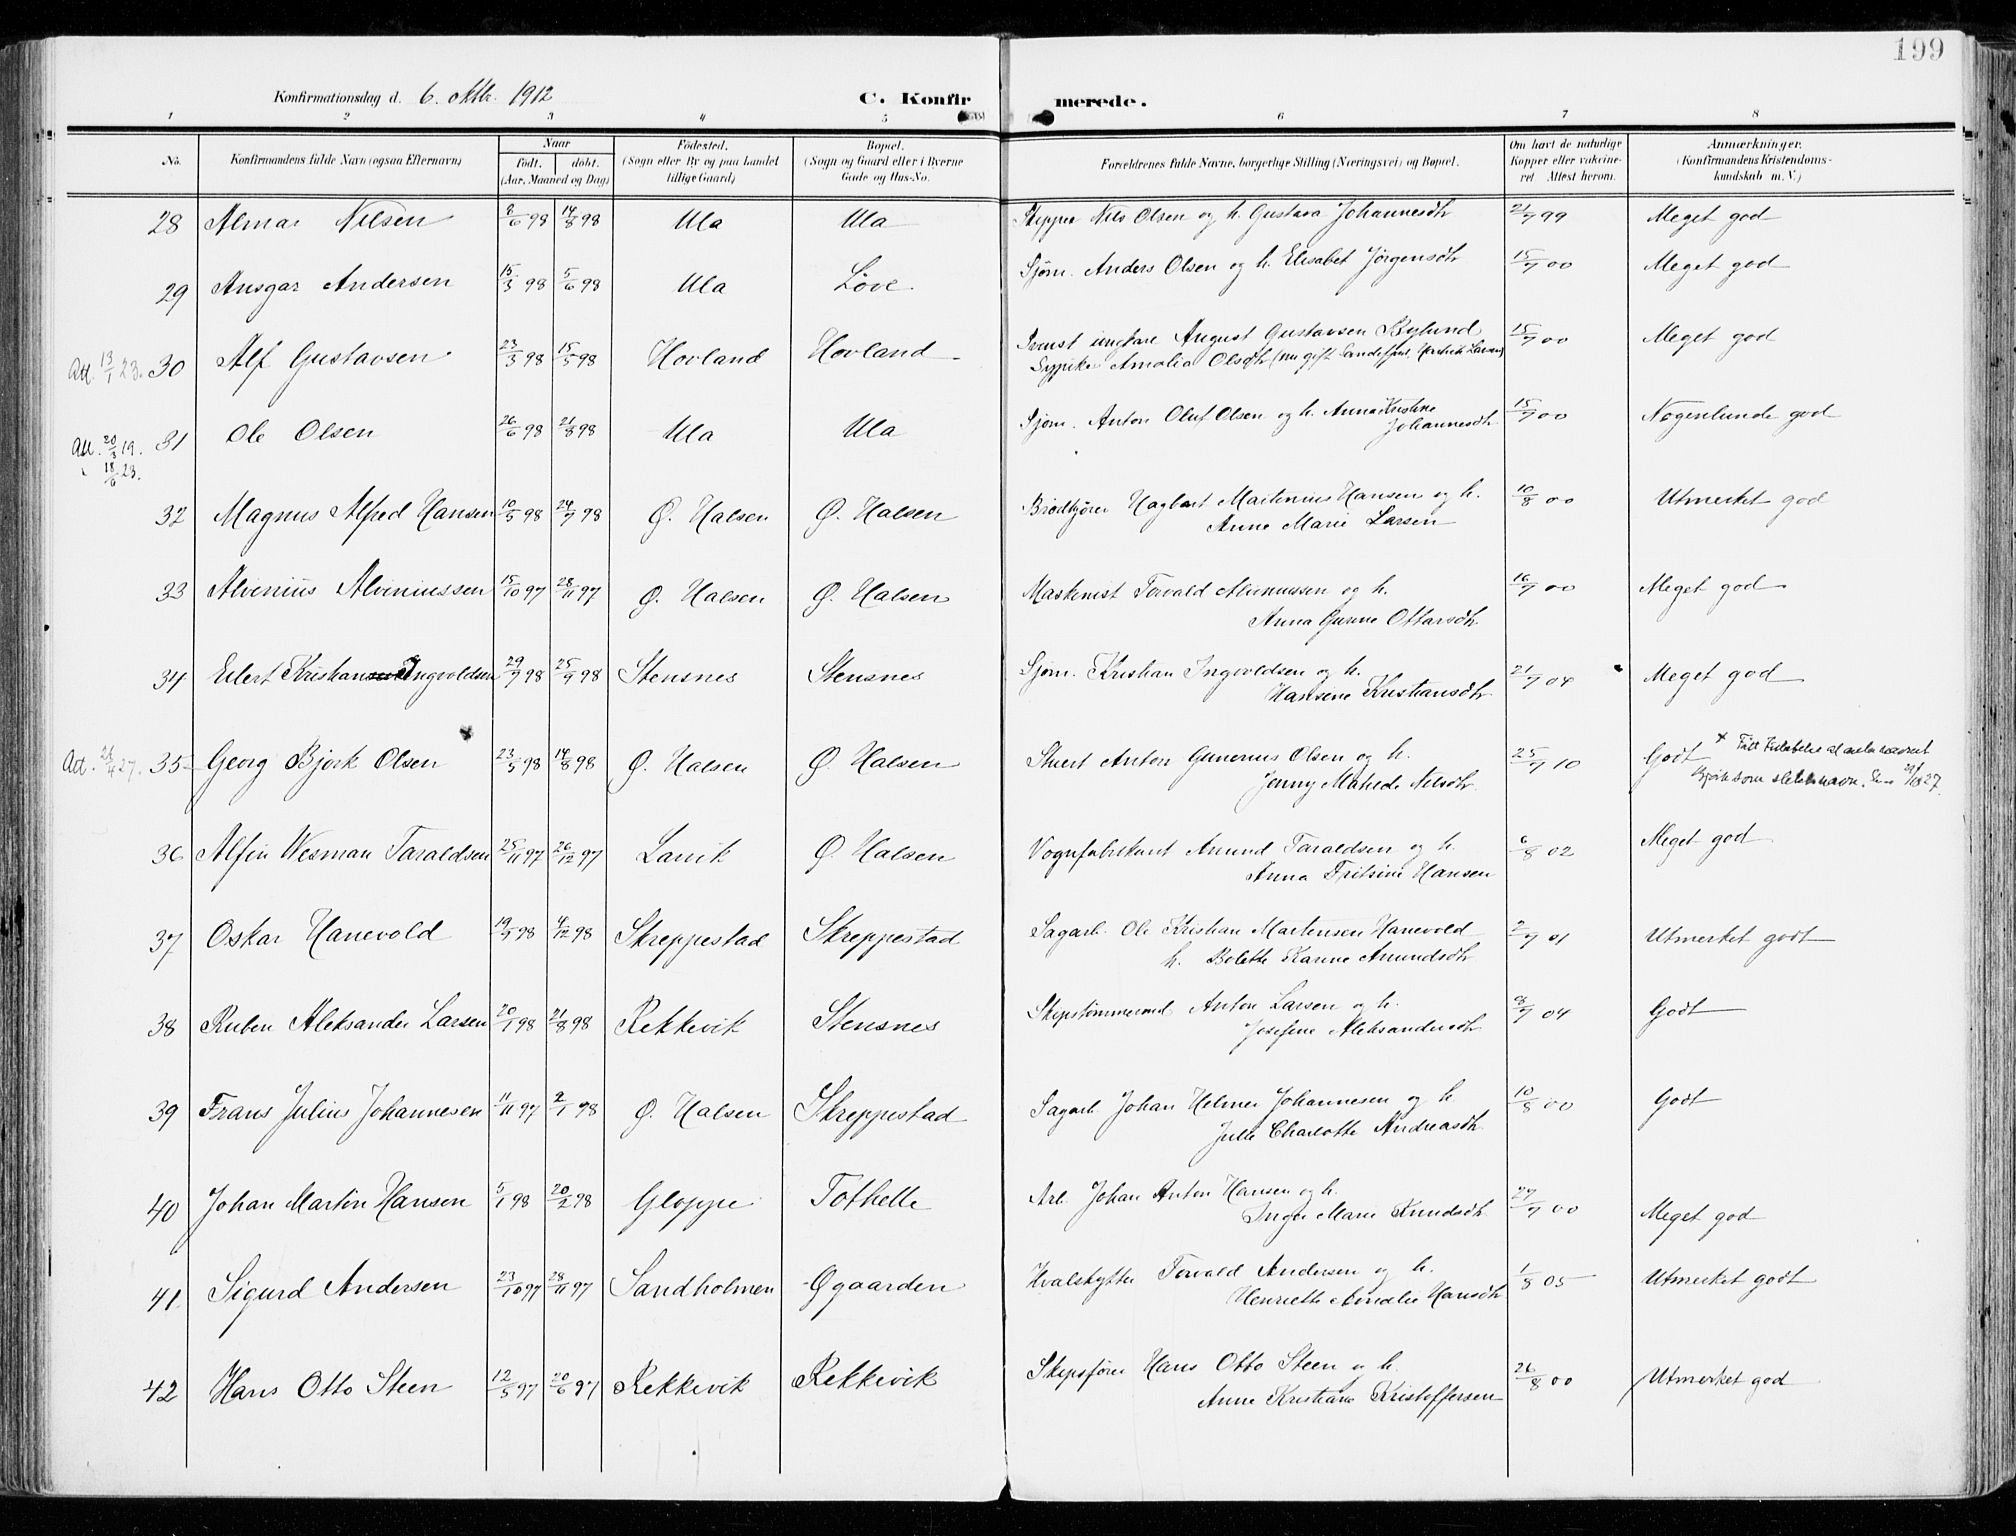 199
Konfirmationsdag d. 6. oktbr. 1912
C. Konfirmerede.
1 2 3 4 5 6 7 8
No. Konfirmandens fulde Navn (ogsaa Efternavn) Naar født. døbt. (Aar, Maaned og Dag) Fødested. (Sogn eller By og paa Landet tillige Gaard) Bopæl. (Sogn og Gaard eller i Byerne Gade og Hus-No. Forældrenes fulde Navne, borgerlige Stilling (Næringsvei) og Bopæl. Om havt de naturlige Kopper eller vakcineret Attest herom. Anmærkninger. (Konfirmandens Kristendomskundskab m. V.)
28 Almar Nilsen 8/6 98 14/8 98 Ula Ula Skipper Nils Olsen og h. Gustava Johannesdtr 21/7 99 Meget god
29 Ansgar Andersen 15/3 98 5/6 98 Ula Løve Sjøm. Anders Olsen og h. Elisabet Jørgensdtr 15/7 00 Meget god
Att. 13/1 23. 30 Alf Gustavsen 23/3 98 15/5 98 Hovland Hovland August Gustavsen 15/7 00 Meget god
Sypike Amalia Olsdtr (nu gift Sandefjord,
Att. 20/3 19. 31 Ole Olsen 26/6 98 21/8 98 Ula Ula Sjøm. Anton Oluf Olsen og h. Anna Kristine 15/7 00 Nogenlunde god
18/6 23. Johannesdtr
32 Magnus Alfred Hansen 10/5 98 24/7 98 Ø. Halsen Ø. Halsen Brødkjører Hagbart Martinius Hansen og h. 10/8 00 Utmerket god
Anne Marie Larsen
33 Alvinius Alviniussen 15/10 97 28/11 97 Ø. Halsen Ø. Halsen Maskinist Torvald Alviniussen og h. 16/7 00 Meget god
Anna Gurine Ottarsdtr
34 Eilert Kristian Ingvoldsen 29/7 98 25/9 98 Stensnes Stensnes Sjøm. Kristian Ingvoldsen og h. 21/7 04 Meget god
Hansine Kristiansdtr
Att. 26/4 27. 35 Georg Bjørk Olsen 23/5 98 14/8 98 Ø. Halsen Ø. Halsen Stuert Anton Gunerius Olsen og h. 25/7 10 Godt × Fått tilladelse
Jenny Matilde Nilsdtr Bjørk som slektsnavn.
36 Alfin Wesman Taraldsen 25/11 97 26/12 97 Larvik Ø. Halsen Vognfabrikant Amund Taraldsen og h. 6/8 02 Meget god
Anna Fritsine Hansen
37 Oskar Hanevold 19/9 98 4/12 98 Skreppestad Skreppestad Sagarb. Ole Kristian Martinsen Hanevold 2/7 01 Utmerket godt
h. Bolette Karine Amundsdtr
38 Ruben Aleksander Larsen 20/1 98 21/8 98 Rekkevik Stensnes Skipstømmermd. Anton Larsen og h. 8/7 04 Godt
Josefine Aleksandersdtr
39 Frans Julius Johannesen 11/11 97 2/1 98 Ø. Halsen Skreppestad Sagarb. Johan Helmer Johannesen og h. 10/8 00 Godt
Julie Charlotte Andreasdtr
40 Johan Martin Hansen 5/1 98 20/2 98 Gloppe Tothelle Arb. Johan Anton Hansen og h. 27/7 00 Meget god
Inga Marie Knudsdtr
41 Sigurd Andersen 23/10 97 28/11 97 Sandholmen Øgaarden Hvalskytter Torvald Andersen og h. 1/8 05 Utmerket godt
Henriette Amalie Hansdtr
42 Hans Otto Steen 12/5 97 20/6 97 Rekkevik Rekkevik Skipsfører Hans Otto Steen og h. 26/8 00 Utmerket god
Anne Kristiane Kristoffersen